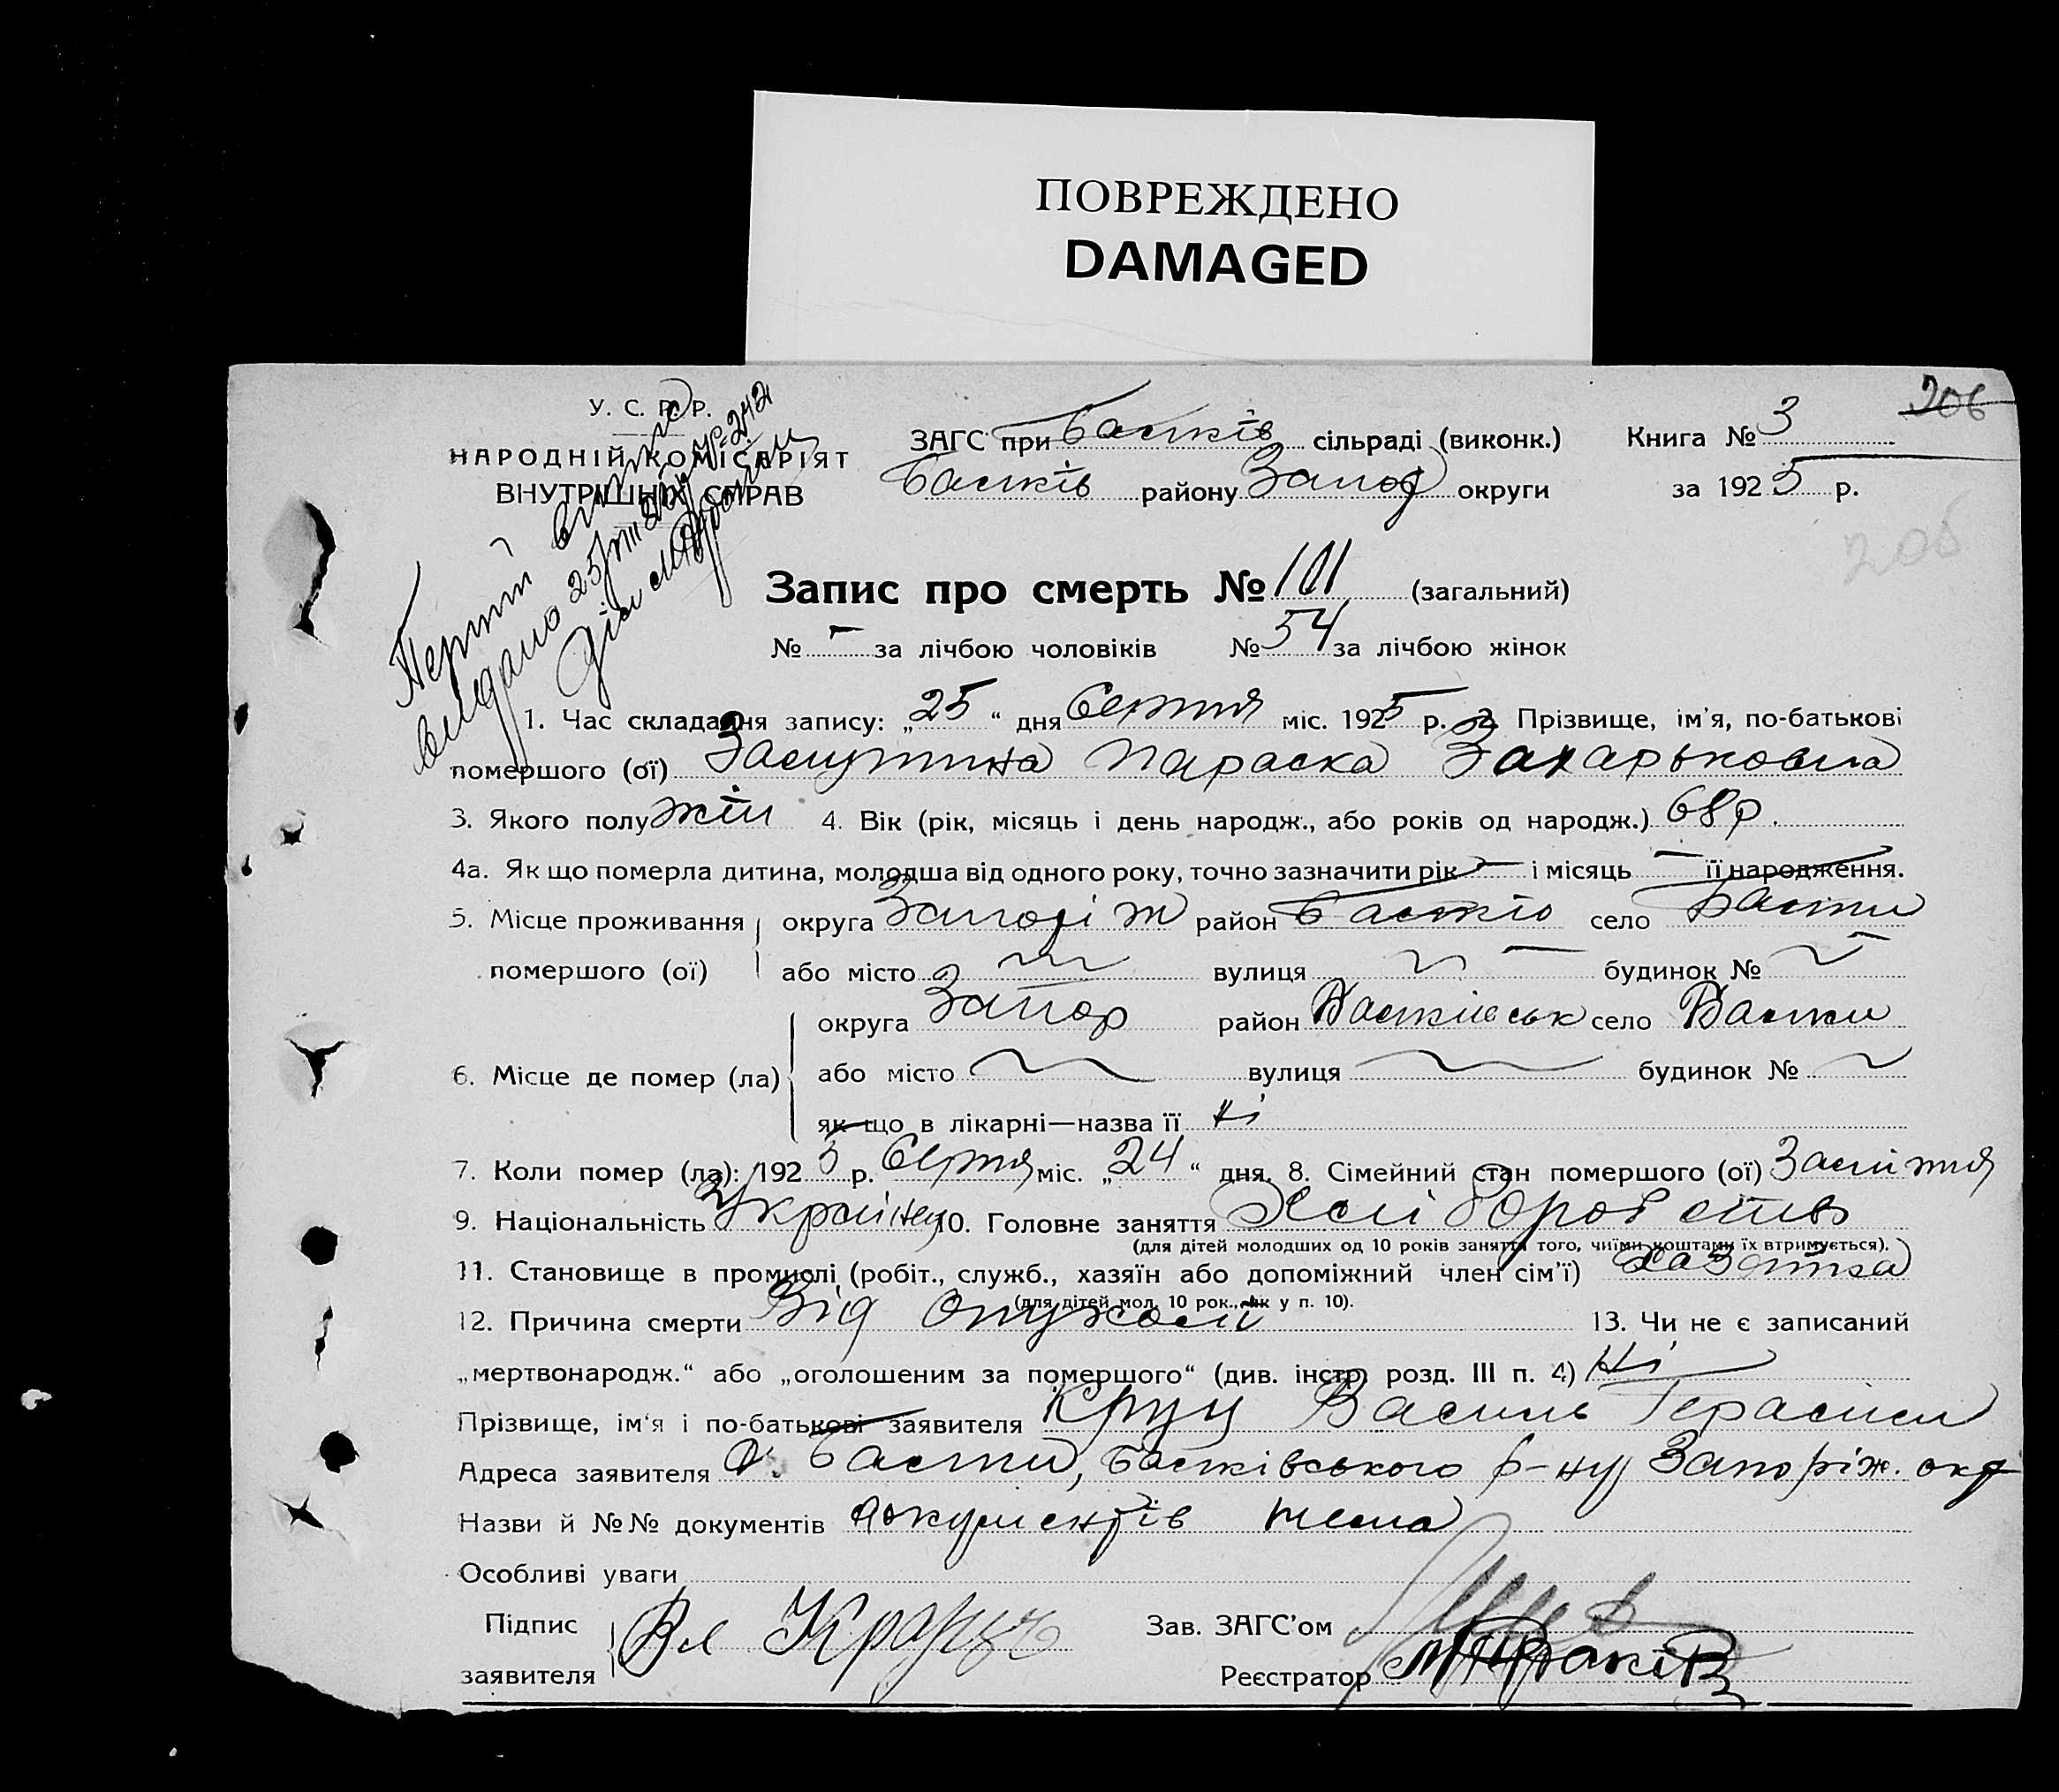 ПОВРЕЖДЕНО
DAMAGED
206
У. С. Р. Р.
НАРОДНІЙ КОМІСАРІЯТ
ВНУТРІШНІХ СПРАВ
ЗАГС при Балків сільраді (виконк.) Книга № 3
Балків району Запор округи за 1925 р.
205
Перший випис
видано 25/VIII 25 р № 242
Запис про смерть № 101 (загальний)
№ – за лічбою чоловіків № 54 за лічбою жінок
1. Час складання запису: „25“ дня Серпня міс. 1925 р. 2. Прізвище, ім'я, по-батькові
помершого (ої) Параска Захарьковна
3. Якого полу жін 4. Вік (рік, місяць і день народж., або років од народж.) 68 р.
4а. Як що померла дитина, молодша від одного року, точно зазначити рік – і місяць – її народження.
5. Місце проживання округа Запоріж район село Балки
помершого (ої) або місто вулиця – будинок № –
округа Запор район Балківськ село Балки
6. Місце де помер (ла) або місто вулиця будинок №
як що в лікарні—назва її Ні
7. Коли помер (ла): 1925 р. Серпня міс. „24“ дня. 8. Сімейний стан помершого (ої)
9. Національність Україн 10. Головне заняття Хліборобство
(для дітей молодших од 10 років заняття того, чиїми коштами їх втримується).
11. Становище в промислі (робіт., служб., хазяїн або допоміжний член сім'ї) Хазяйка
(для дітей мол. 10 рок., як у п. 10).
12. Причина смерти Від Опухолі 13. Чи не є записаний
„мертвонародж.“ або „оголошеним за помершого“ (див. інстр. розд. III п. 4) Ні
Прізвище, ім'я і по-батькові заявителя Василь Герасим
Адреса заявителя с. Балки, Балківського р-ну Запоріж. окр
Назви й №№ документів документів нема
Особливі уваги
Підпис
заявителя
Зав. ЗАГС'ом
Реєстратор